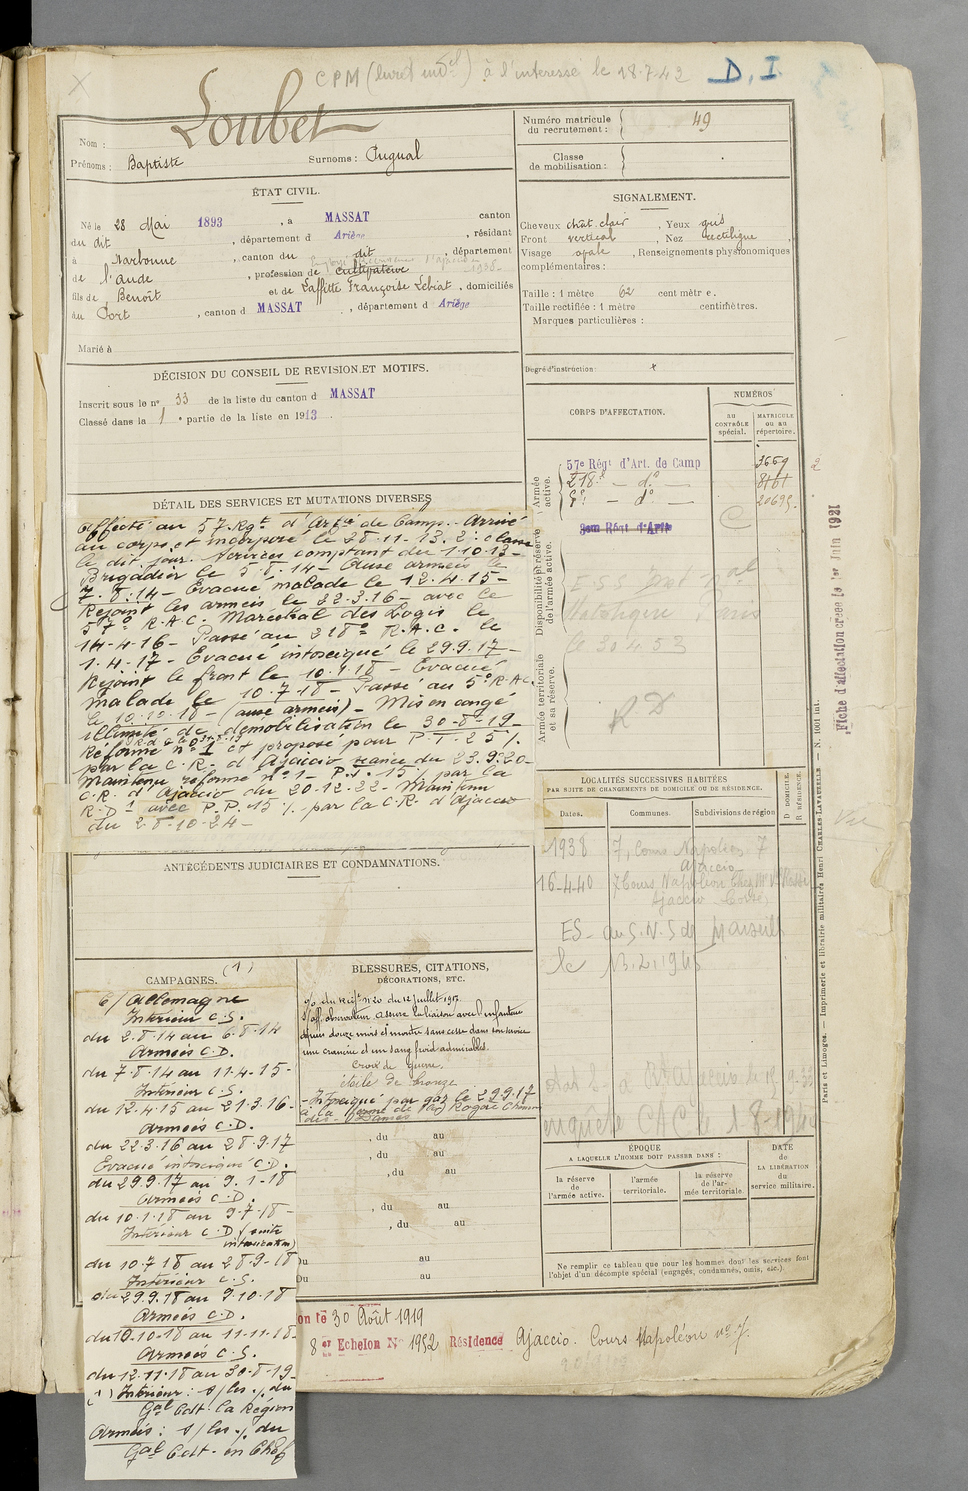 CPM (livret indel) à l'intéressé le 18.7.42 D, I.
Loubet
Nom :
Prénoms : Baptiste Surnoms : Pugual
Numéro matricule du recrutement : 49
Classe de mobilisation :
ÉTAT CIVIL.
Né le 28 Mai 1893, à MASSAT canton
du dit, département d Ariège, résidant
à Narbonne, canton du dit, département
de l'Aude, profession de cultivateur
1938
fils de Benoît et de Laffitte Françoise, domiciliés
au Port, canton d MASSAT, département d Ariège
Marié à
SIGNALEMENT.
Cheveux chât. clair, Yeux gris
Front vertical, Nez rectiligne,
Visage ovale, Renseignements physionomiques
complémentaires :
Taille : 1 mètre 62 centimètres.
Taille rectifiée : 1 mètre centimètres.
Marques particulières :
Degré d'instruction :
DÉCISION DU CONSEIL DE REVISION ET MOTIFS.
Inscrit sous le n° 33 de la liste du canton d MASSAT
Classé dans la 1e partie de la liste en 1913
CORPS D'AFFECTATION.
NUMÉROS
au CONTRÔLE spécial.
MATRICULE ou au répertoire.
Armée active.
57e Régt d'Art. de Camp 3669
218e — d° — 8161
5e — d° — 20695
Disponibilité et réserve de l'armée active.
Armée territoriale et sa réserve.
R D
DÉTAIL DES SERVICES ET MUTATIONS DIVERSES
Affecté au 57.Rgt d'Artie de Camp. Arrivé
au corps et incorporé le 28-11-13. 2e classe
le dit jour. Services comptant du 1.10.13-
Brigadier le 5.8.14- Passé armées le
7.8.14- Evacué malade le 12.4.15-
Rejoint les armées le 22.3.16- avec le
57e R.A.C. Maréchal des Logis le
14-4-16- Passé au 218e R.A.C. le
1.4.17- Evacué intoxiqué le 29.9.17-
Rejoint le front le 10.1.18- Evacué
malade le 10.7.18- Passé au 5e R.A.C.
le 10.10.18- (aux armées)- Mis en congé
illimité de démobilisation le 30-8-19-
Réformé n° 1 et proposé pour P.T. 25 %
par la C.R. d'Ajaccio séance du 23.9.20-
Maintenu réformé n° 1- P.T. 15 % par la
C.R. d'Ajaccio du 20-12-22- Maintenu
R.D 1 avec P.P. 15 % par la C.R. d'Ajaccio
du 28-10-24-
ANTÉCÉDENTS JUDICIAIRES ET CONDAMNATIONS.
LOCALITÉS SUCCESSIVES HABITÉES
PAR SUITE DE CHANGEMENTS DE DOMICILE OU DE RÉSIDENCE.
Dates. Communes. Subdivisions de région
D DOMICILE. R RÉSIDENCE.
1938 7, Cours Napoléon 7
Ajaccio
16-4-40 7 Cours Napoléon
Ajaccio Corse
ES- du S.N.S de Marseille
le 13.2.1945
enquête CAC le 1-8-
CAMPAGNES. (1)
c/ Allemagne
Intérieur C.S.
du 2.8.14 au 6.8.14
Armées C.D.
du 7-8-14 au 11-4-15-
Intérieur C.S.
du 12.4.15 au 21.3.16-
Armées C.D.
du 22.3.16 au 28.9.17
Evacué intoxiqué C.D.
du 29.9.17 au 9.1-18
Armées C.D.
du 10.1.18 au 9-7-18-
Intérieur C.D (suite
intoxication)
du 10.7.18 au 28.9-18
Intérieur C.S.
du 29.9.18 au 9.10-18
Armées C.D.
du 10-10-18 au 11-11-18-
Armées C.S.
du 12.11.18 au 30-8-19-
(1) Intérieur : s/ les % du
Gal Cdt la Région
Armées : s/ les % du
Gal Cdt. en Chef
BLESSURES, CITATIONS,
DÉCORATIONS, ETC.
n° 20 du 12 juillet 1917.
observateur, assure la liaison avec l'infanterie
depuis douze mois et montre sans cesse dans son service
une crânerie et un sang froid admirables.
Croix de guerre,
étoile de bronze
- Intoxiqué par gaz le 29.9.17
à la ferme de
des Dames
, du au
, du au
, du au
, du au
, du au
Du au
Du au
ÉPOQUE
A LAQUELLE L'HOMME DOIT PASSER DANS :
la réserve de l'armée active.
l'armée territoriale.
la réserve de l'armée territoriale.
DATE de LA LIBÉRATION du service militaire.
Ne remplir ce tableau que pour les hommes dont les services font
l'objet d'un décompte spécial (engagés, condamnés, omis, etc.).
on le 30 Août 1919
8 er Echelon N° 1952 Résidence Ajaccio. Cours Napoléon n° 7.
Paris et Limoges. — Imprimerie et librairie militaires Henri CHARLES-LAVAUZELLE — N. 1001 int.
Fiche d'affectation créée le 1er Juin 1921
Vu